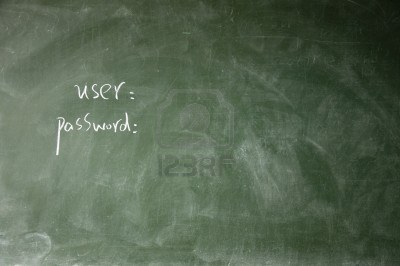 user:
password:
123RF